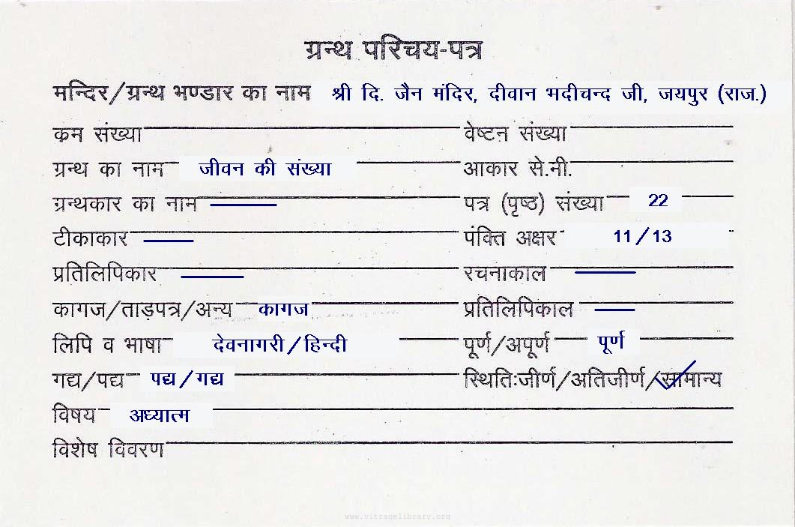 ग्रन्थ परिचय-पत्र
मन्दिर/ग्रन्थ भण्डार का नाम श्री दि. जैन मंदिर, दीवान भदीचन्द जी, जयपुर (राज.)
कम संख्या वेष्टन संख्या
ग्रन्थ का नाम जीवन की संख्या आकार से.मी.
ग्रन्थकार का नाम पत्र (पृष्ठ) संख्या 22
टीकाकार पंक्ति अक्षर 11/13
प्रतिलिपिकार रचनाकाल
कागज/ताड़पत्र/अन्य कागज प्रतिलिपिकाल
लिपि व भाषा देवनागरी/हिन्दी पूर्ण/अपूर्ण पूर्ण
गद्य/पद्य पद्य/गद्य स्थितिःजीर्ण/अतिजीर्ण/सामान्य
विषय अध्यात्म
विशेष विवरण
www.vitragelibrary.com